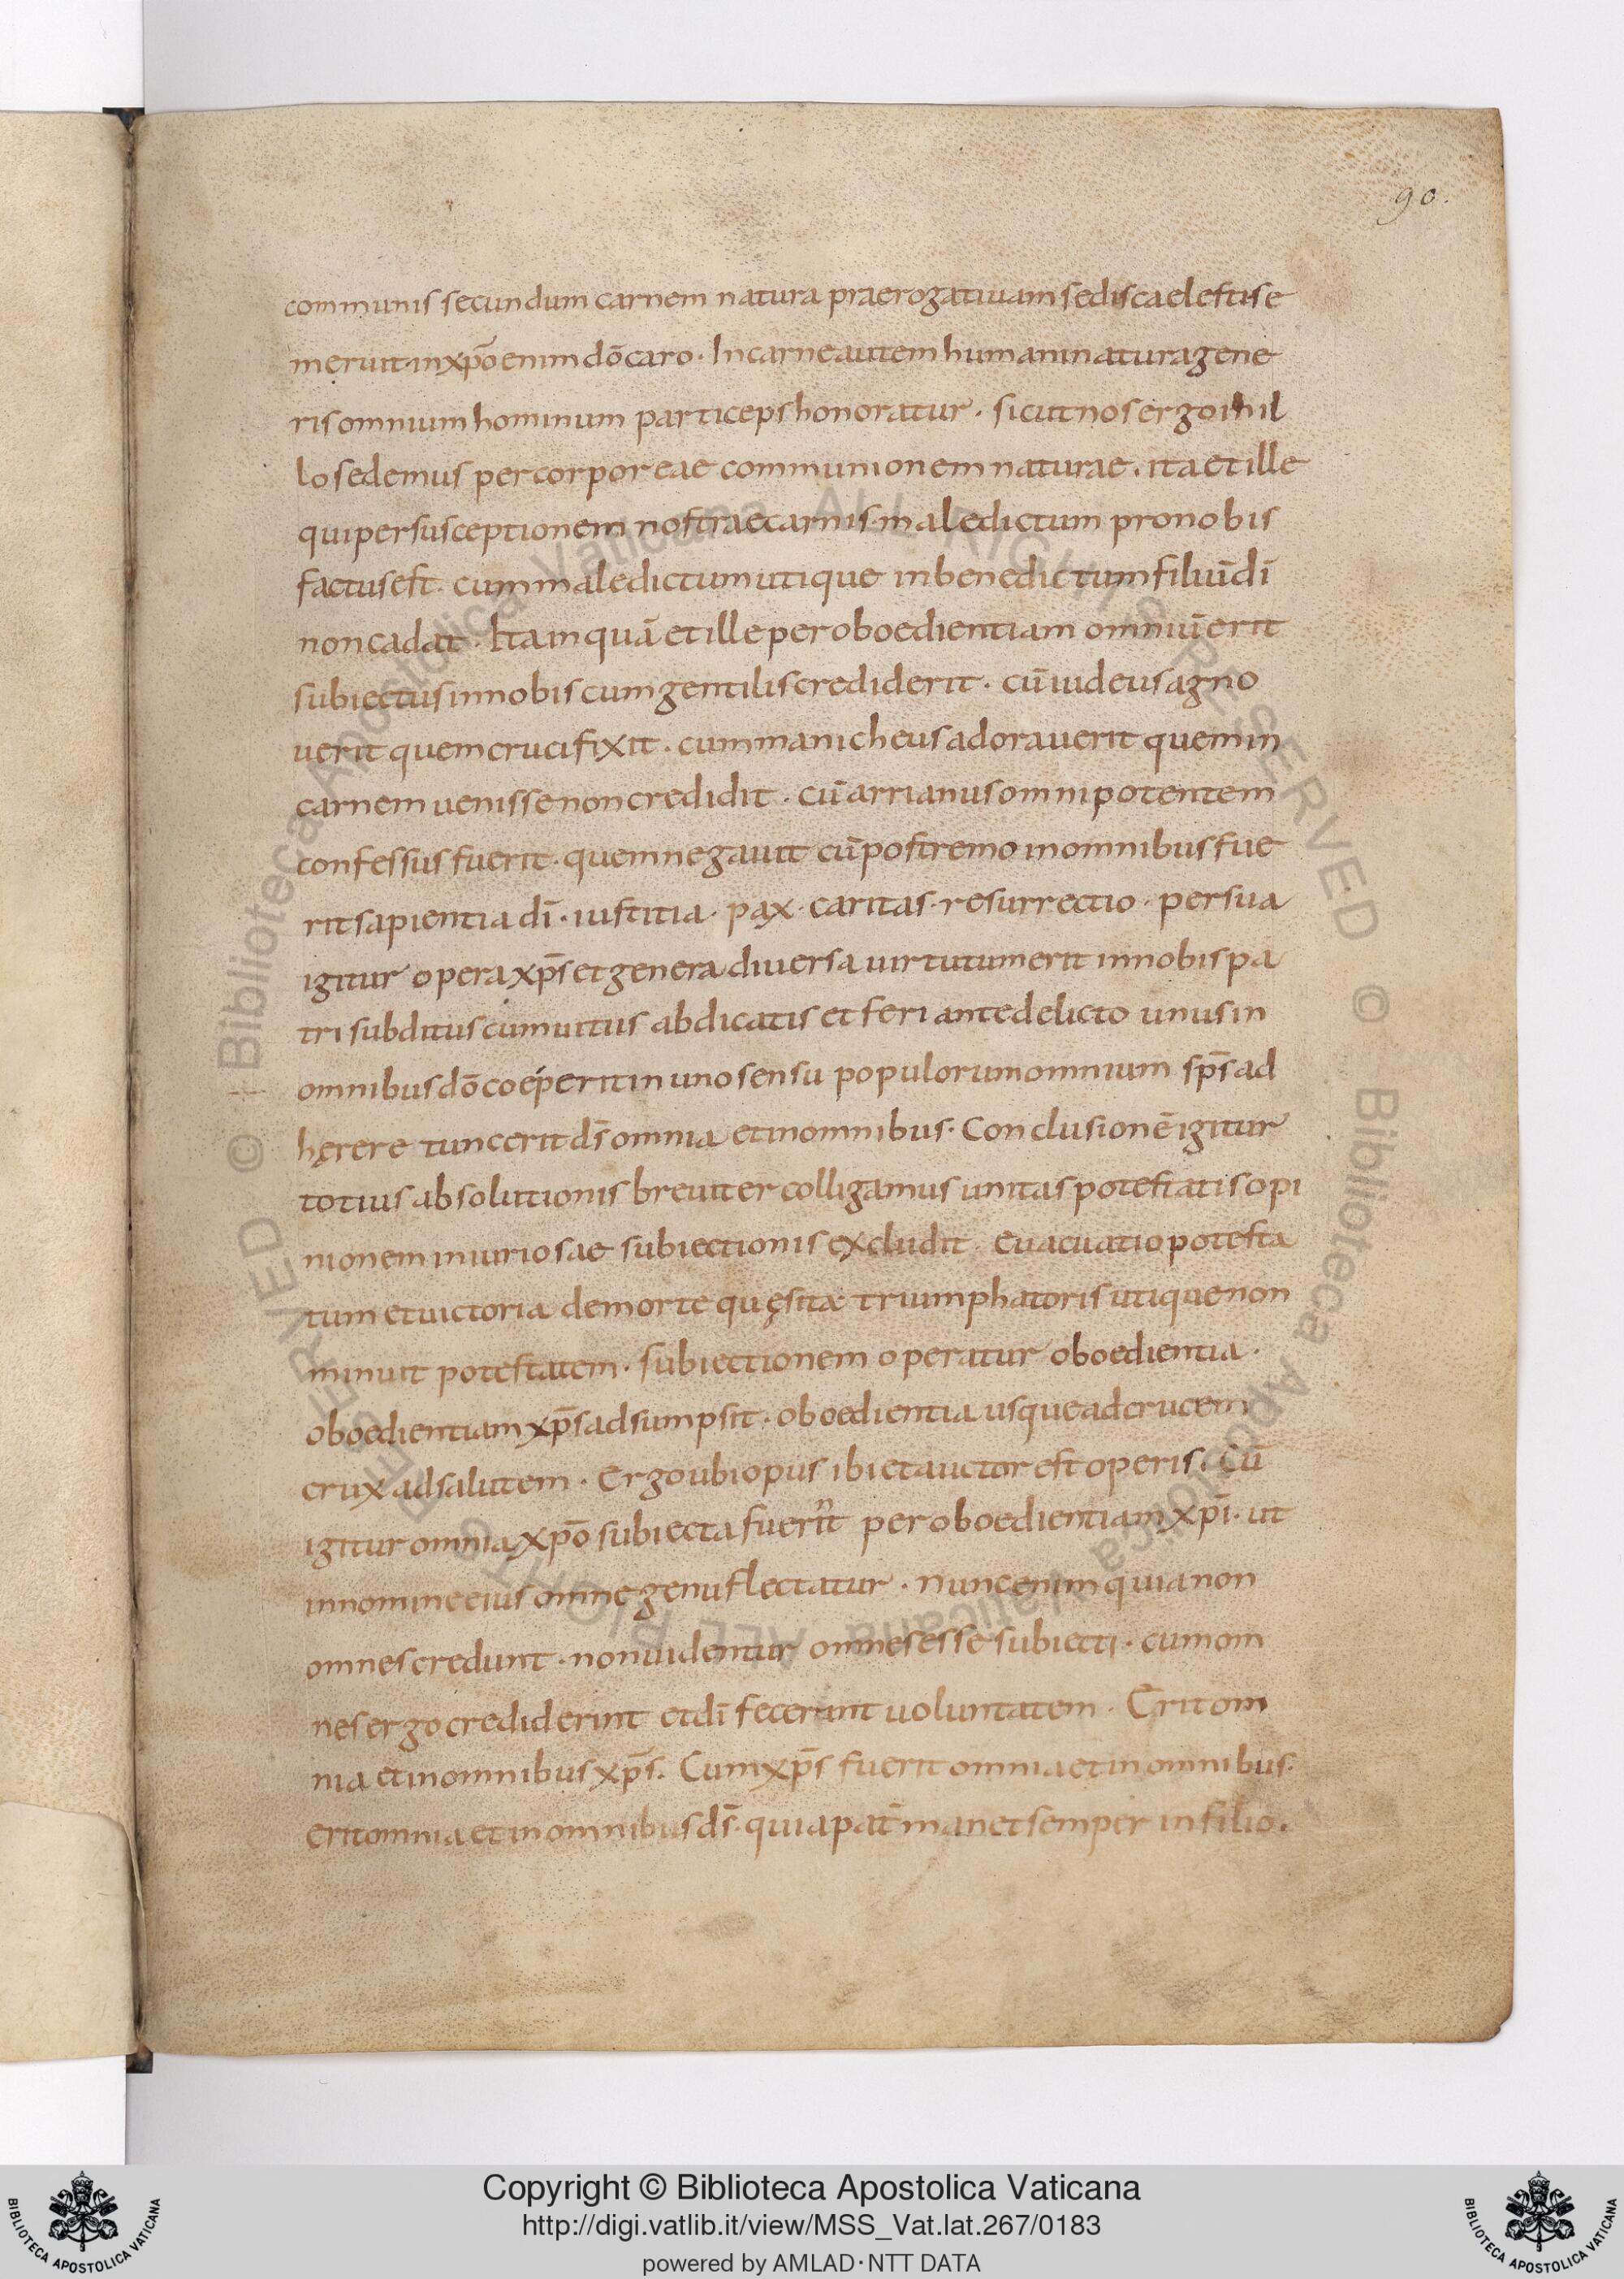 90.
communis secundum carnem natura praerogatiuam sedis caelestis e
meruit· in xp̄o enim dō caro· In carne autem humani natura gene
ris omnium hominum particeps honoratur· sicut nos ergo in il
lo sedemus per corporeae communionem naturae· ita et ille
qui per susceptionem nostrae carnis· maledictum pro nobis
factus est· cum maledictum utique in benedictum filiū dī
non cadat· Ita inquā et ille per oboedientiam omniū erit
subiectus in nobis cum gentilis crediderit· cū iudeus agno
uerit quem crucifixit· cum manicheus adorauerit quem in
carnem uenisse non credidit· cū arrianus omnipotentem
confessus fuerit· quem negauit cū postremo in omnibus fue
rit sapientia dī· iustitia· pax· caritas· resurrectio· per sua
igitur opera xp̄s et genera diuersa uirtutum erit in nobis pa
tri subditus cum uitiis abdicatis et feriante delicto unus in
omnibus dō coeperit in uno sensu populorum omnium sp̄s ad
hęrere tunc erit ds̄ omnia et in omnibus· Conclusionē igitur
totius absolutionis breuiter colligamus unitas potestatis opi
nionem iniuriosae subiectionis excludit· euacuatio potesta
tum et uictoria de morte quęsita triumphatoris utique non
minuit potestatem· subiectionem operatur oboedientia·
oboedientiam xp̄s adsumpsit· oboedientia usque ad crucem
crux ad salutem· Ergo ubi opus ibi et auctor est operis· Cū
igitur omnia xp̄o subiecta fuerīt per oboedientiam xp̄i· ut
in nomine eius omne genu flectatur· nunc enim quia non
omnes credunt· non uidentur omnes esse subiecti· cum om
nes ergo crediderint et dī fecerint uoluntatem· Erit om
nia et in omnibus xp̄s· Cum xp̄s fuerit omnia et in omnibus·
erit omnia et in omnibus ds̄· quia pat̄ manet semper in filio·
Copyright © Biblioteca Apostolica Vaticana
http://digi.vatlib.it/view/MSS_Vat.lat.267/0183
powered by AMLAD·NTT DATA
BIBLIOTECA APOSTOLICA VATICANA
BIBLIOTECA APOSTOLICA VATICANA
© Biblioteca Apostolica Vaticana ALL RIGHTS RESERVED
© Biblioteca Apostolica Vaticana ALL RIGHTS RESERVED